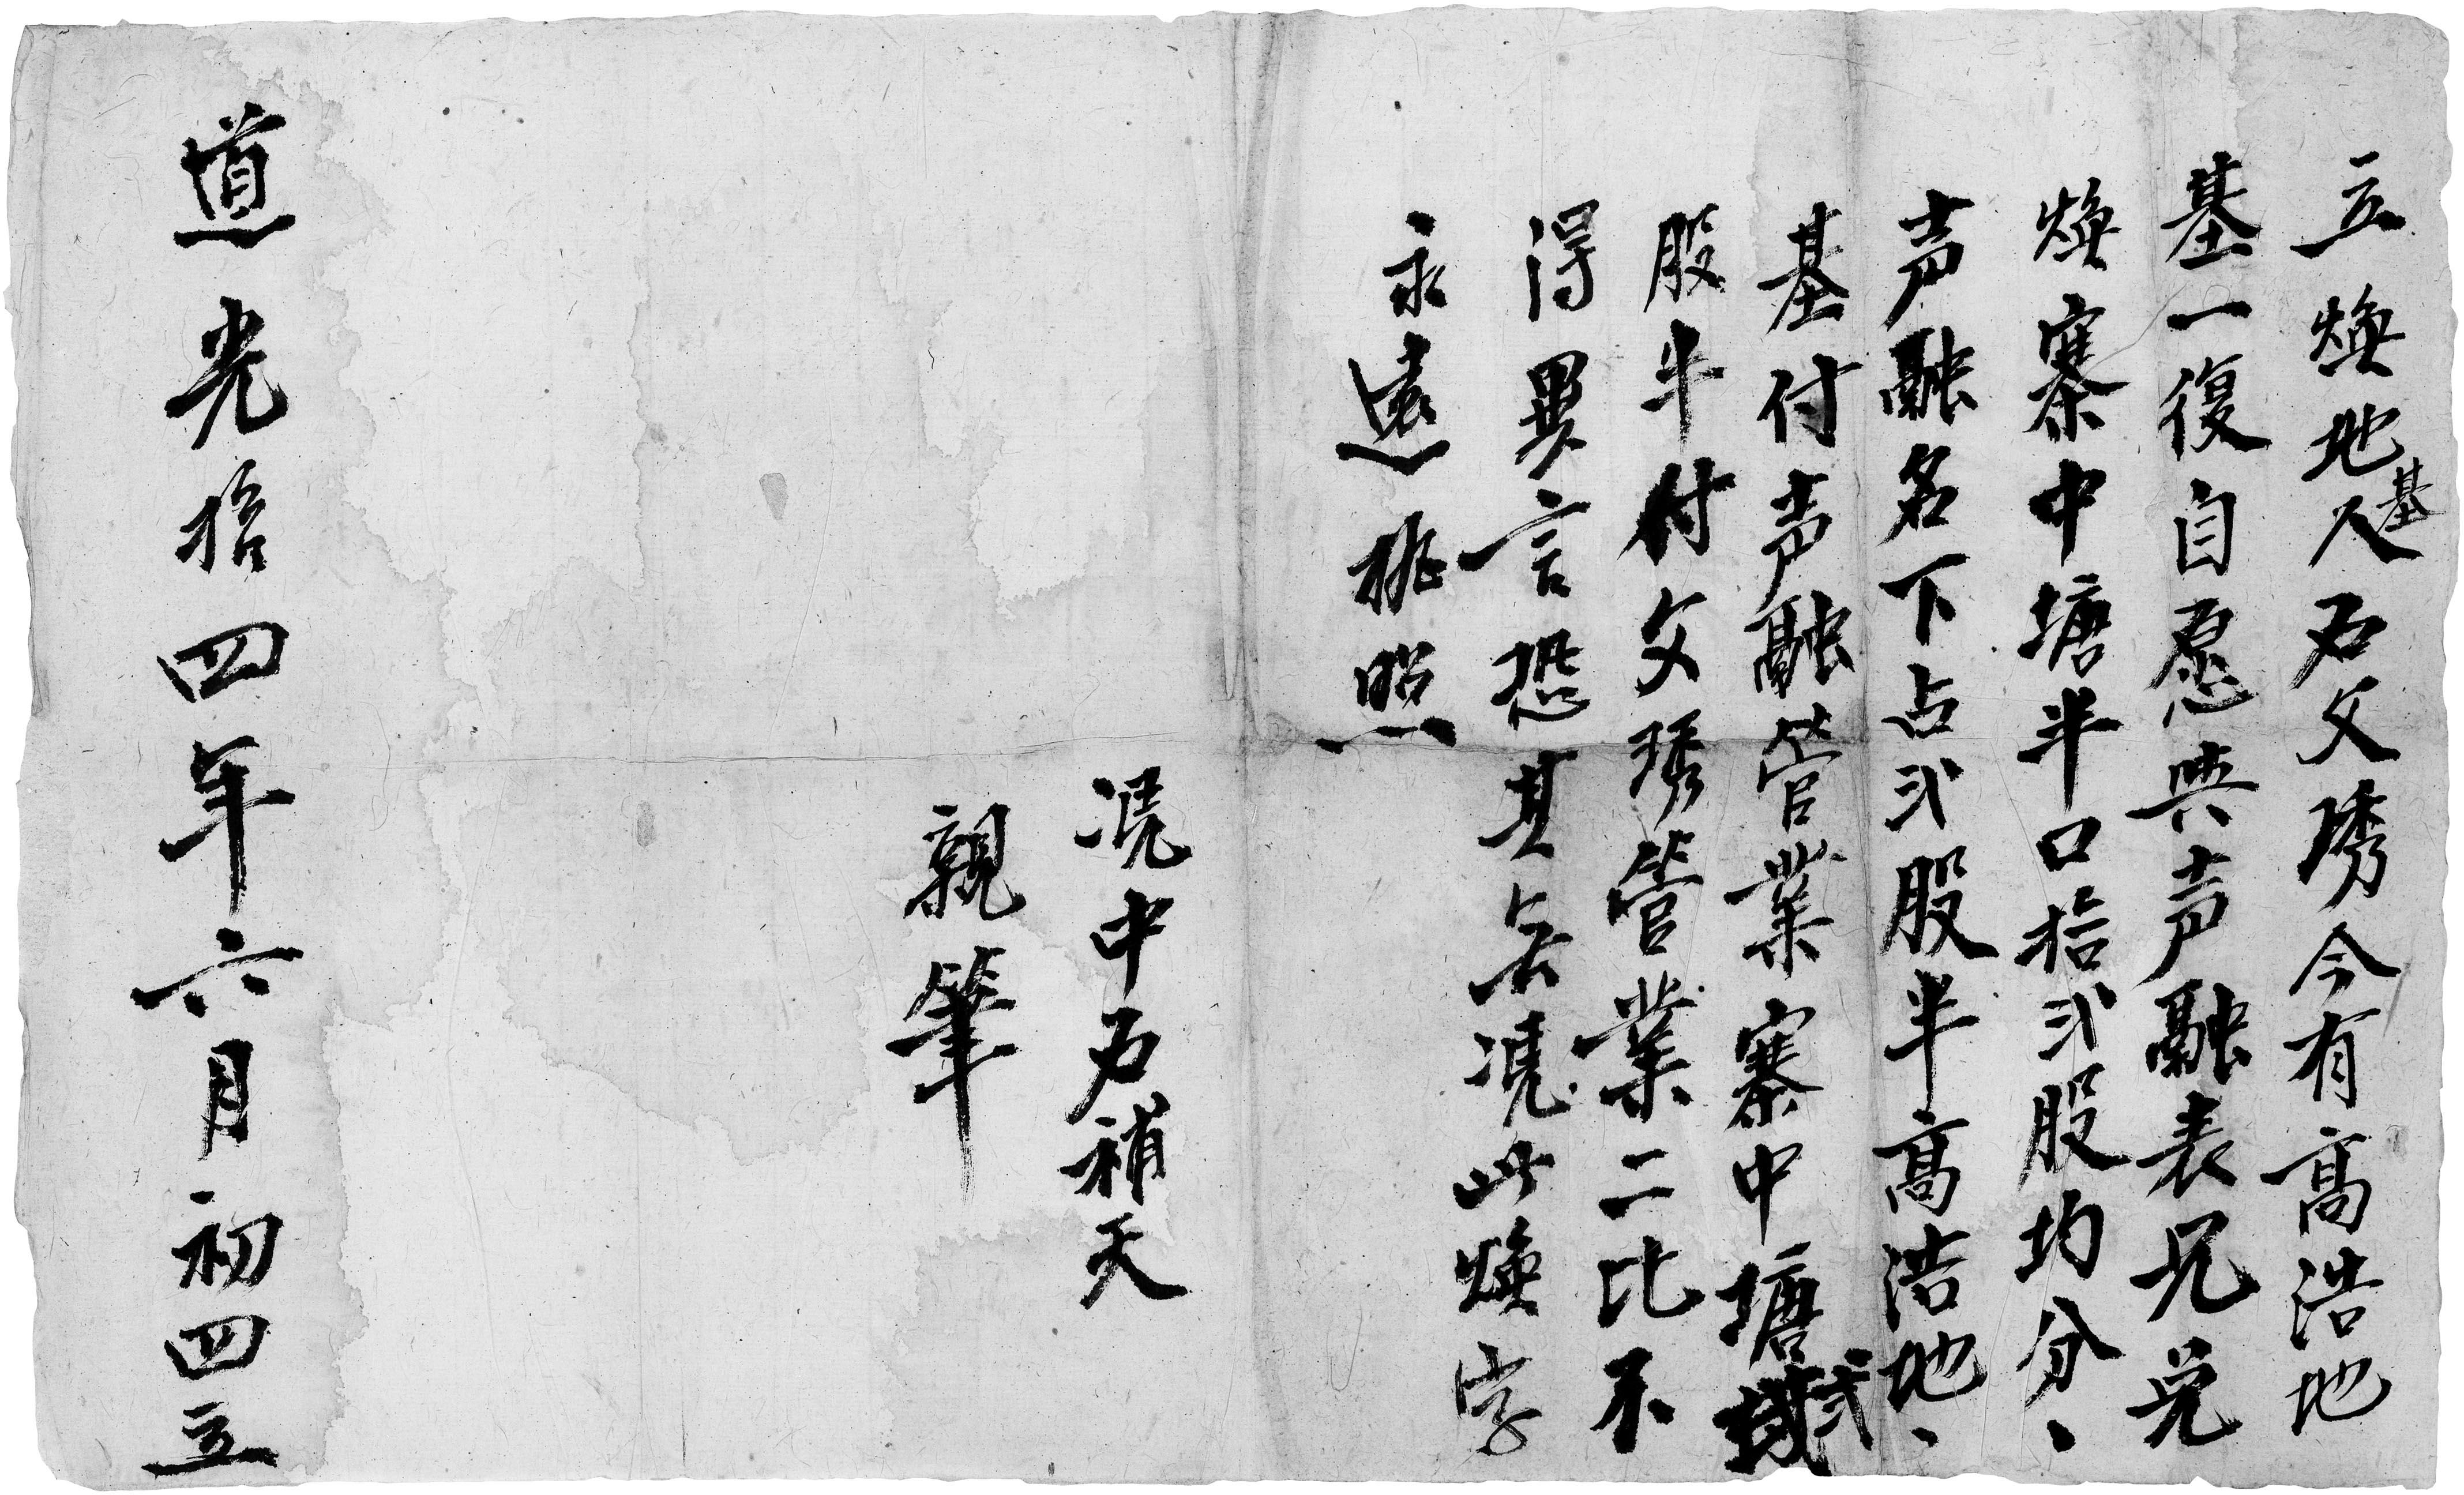 立煥地基人石文琇今有高浩地
基一復自愿與声融表兄兌
煥寨中塘半口拾弍股均分、
声融名下占弍股半高浩地、
基付声融管業寨中塘弍
股半付文琇管業二比不
得異言恐其無凴此煥字
永遠執照
凴中石補天
親筆
道光拾四年六月初四立